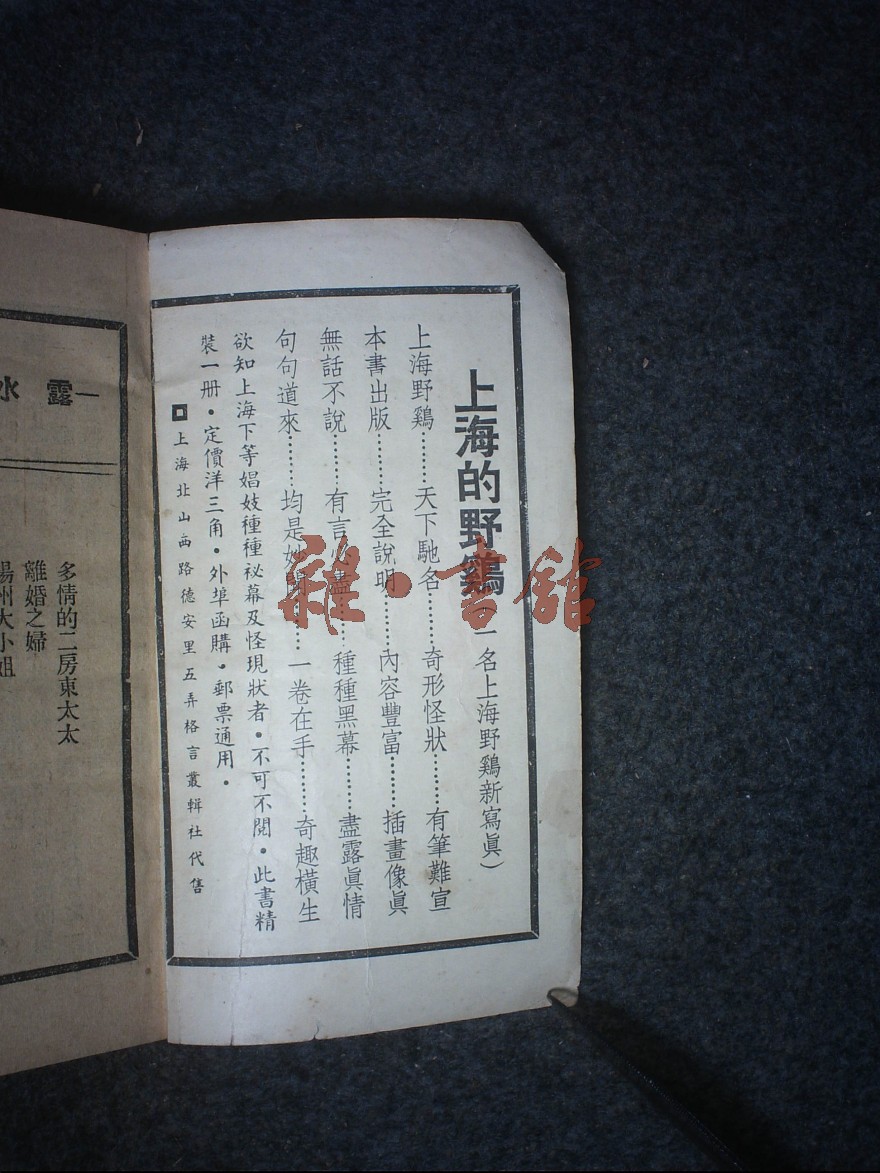 上海的野鷄(一名上海野鷄新寫眞)
上海野鷄………天下馳名………奇形怪狀………有筆難宣
本書出版………完全說明………內容豐富………插畫像眞
無話不說………有言必盡………種種黑幕………盡露眞情
句句道來………均是她………一卷在手………奇趣橫生
欲知上海下等娼妓種種祕幕及怪現狀者•不可不閱•此書精
裝一册•定價洋三角•外埠函購•郵票通用•
上海北山西路德安里五弄格言叢輯社代售
一露水
多情的二房東太太
離婚之婦
揚州大小姐
雜·書館